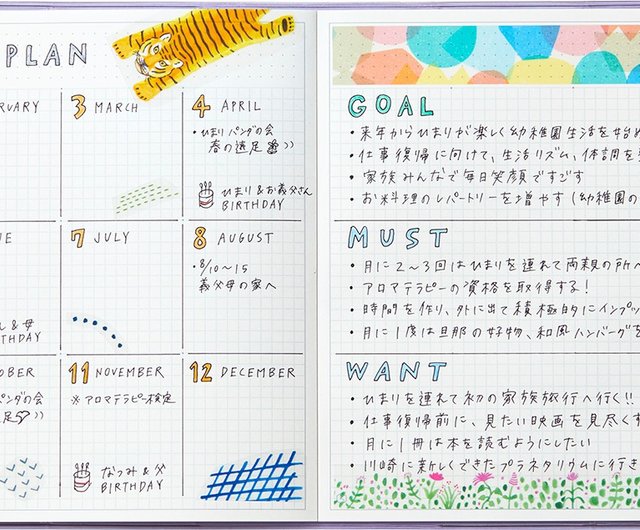 PLAN
RUARY
3 MARCH
4 APRIL
・ひまり パンダの会
春の遠足
ひまり&お義父さん
BIRTHDAY
NE
7 JULY
8 AUGUST
・8/10〜15
義父母の家へ
ん&母
RTHDAY
OBER
11 NOVEMBER
12 DECEMBER
パンダの会
遠足
※アロマテラピー検定
なつみ&父
BIRTHDAY
GOAL
・来年からひまりが楽しく幼稚園生活を始め
・仕事復帰に向けて、生活リズム、体調を
・家族みんなで毎日笑顔ですごす
・お料理のレパートリーを増やす(幼稚園の
MUST
・月に2〜3回はひまりを連れて両親の所へ
・アロマテラピーの資格を取得する!
・時間を作り、外に出て積極的にインプッ
・月に1度は旦那の好物、和風ハンバーグを
WANT
・ひまりを連れて初の家族旅行へ行く!!
・仕事復帰前に、見たい映画を見尽くす
・月に1冊は本を読むようにしたい
・川崎に新しくできたプラネタリウムに行き